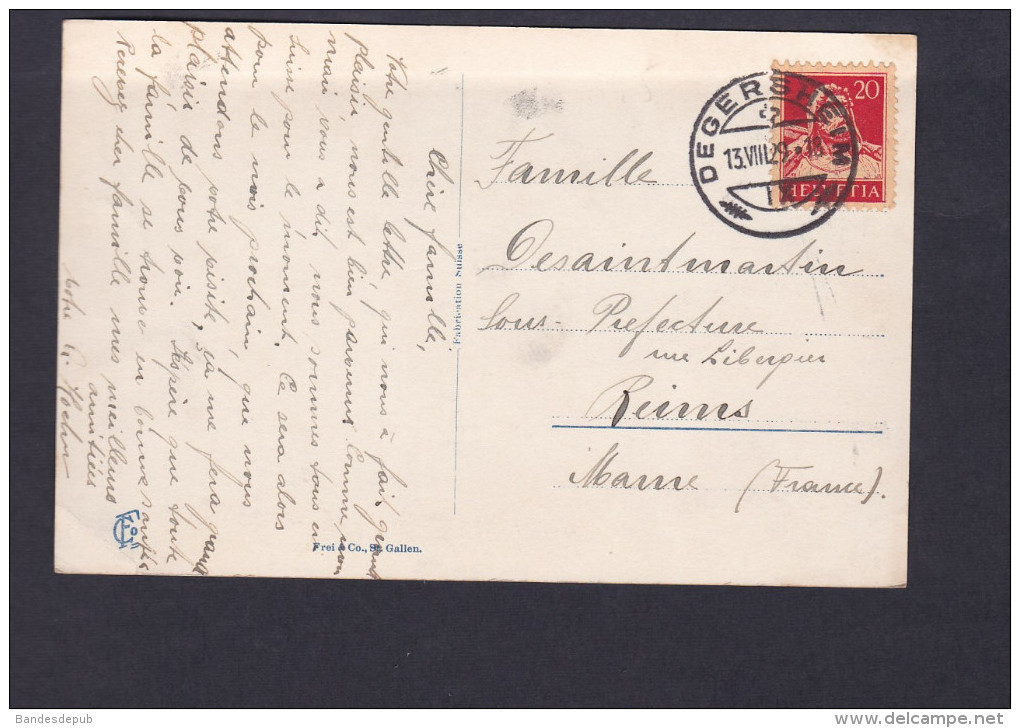 Chère famille,
Votre gentille lettre qui nous à fait grand
plaisir, nous est bien parvenu. Comme mon
mari vous a dit nous sommes tous en
Suisse pour le moment. Ce sera alors
pour le mois prochain, que nous
attendons votre visite, ça me fera grand
plaisir de vous voir. J'éspère que toute
la famille se trouve en bonne santé.
Recevez cher famille mes meilleurs
amitiées
votre
Fabrication Suisse
Frei & Co., St. Gallen.
DEGERSHEIM
13.VIII.29
20
HELVETIA
Famille
Desaintmartin
Sous-Prefecture
rue Libergier
Reims
Marne (France).
Bandesdepub
www.delcampe.net